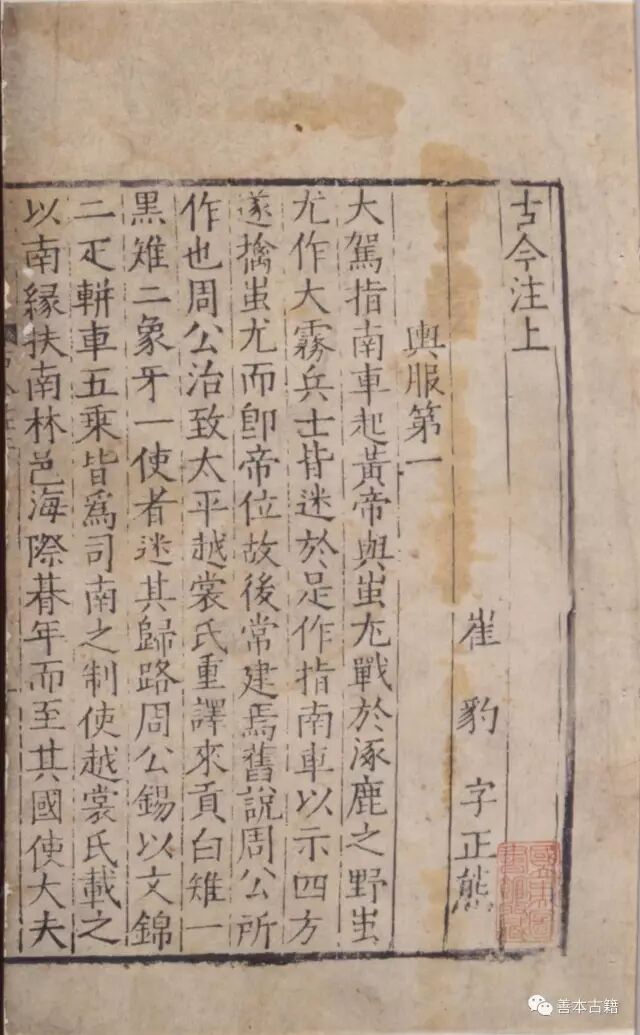 古今注上
崔豹字正熊
輿服第一
大駕指南車起黃帝與蚩尤戰於涿鹿之野蚩
尤作大霧兵士皆迷於是作指南車以示四方
遂擒蚩尤而即帝位故後常建焉舊說周公所
作也周公治致太平越裳氏重譯來貢白雉一
黑雉二象牙一使者迷其歸路周公錫以文錦
二疋軿車五乘皆爲司南之制使越裳氏載之
以南緣扶南林邑海際朞年而至其國使大夫
善本古籍